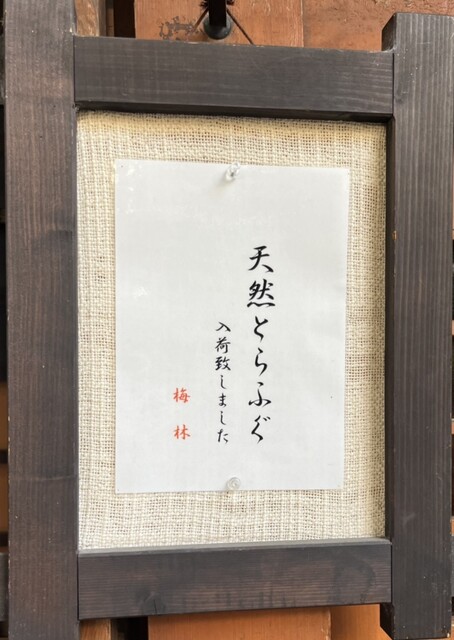 天然とらふぐ
入荷致しました
梅林